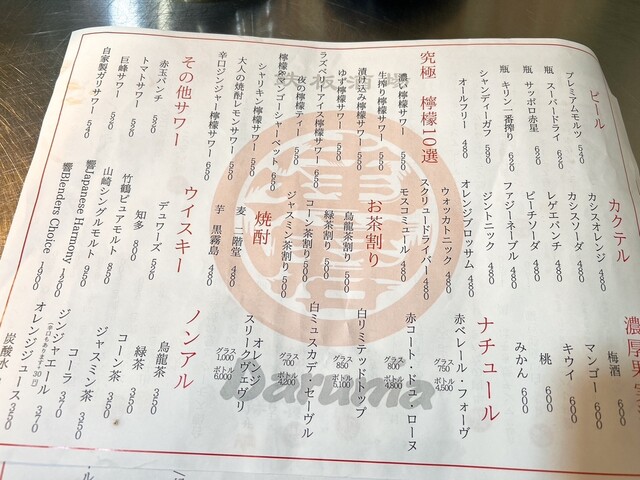 ビール
プレミアムモルツ 520
瓶 スーパードライ 620
瓶 サッポロ赤星 620
瓶 キリン一番搾り 620
シャンディーガフ 590
オールフリー 480
究極 檸檬10選
濃い檸檬サワー 550
生搾り檸檬サワー 580
漬け込み檸檬サワー 580
ゆず檸檬サワー 520
夜の檸檬ティー 580
ラズベリーアイス檸檬サワー 650
檸檬&マンゴーシャーベット 650
シャリキン檸檬サワー 550
大人の焼酎レモンサワー 550
辛口ジンジャー檸檬サワー 650
その他サワー
赤玉パンチ 520
トマトサワー 520
巨峰サワー 520
自家製ガリサワー 540
カクテル
カシスオレンジ 480
カシスソーダ 480
レゲエパンチ 480
ピーチソーダ 480
ファジーネーブル 480
ジントニック 480
オレンジブロッサム 480
ウォッカトニック 480
スクリュードライバー 480
モスコミュール 480
お茶割り
烏龍茶割り 500
緑茶割り 500
コーン茶割り 500
ジャスミン茶割り 500
焼酎
麦 一階堂 480
芋 黒霧島 480
ウイスキー
デュワーズ 520
知多 800
竹鶴ピュアモルト 850
山崎シングルモルト 950
響Japanese Harmony 1200
響Blenders Choice 1400
梅酒 600
マンゴー 600
キウイ 600
桃 600
みかん 600
ナチュール
赤ベレール・フォーヴ
グラス 750 ボトル 4,500
赤コート・ドュローヌ
グラス 800 ボトル 4,800
白リミテッドトップ
グラス 850 ボトル 5,100
白ミュスカデ・セーヴル
グラス 700 ボトル 4,200
オレンジ
スリークヴェヴリ
グラス 1,000 ボトル 6,000
ノンアル
烏龍茶 350
緑茶 350
コーン茶 350
ジャスミン茶 350
コーラ 370
ジンジャエール 370
(辛口もあります+30円)
オレンジジュース 350
炭酸水
Daruma